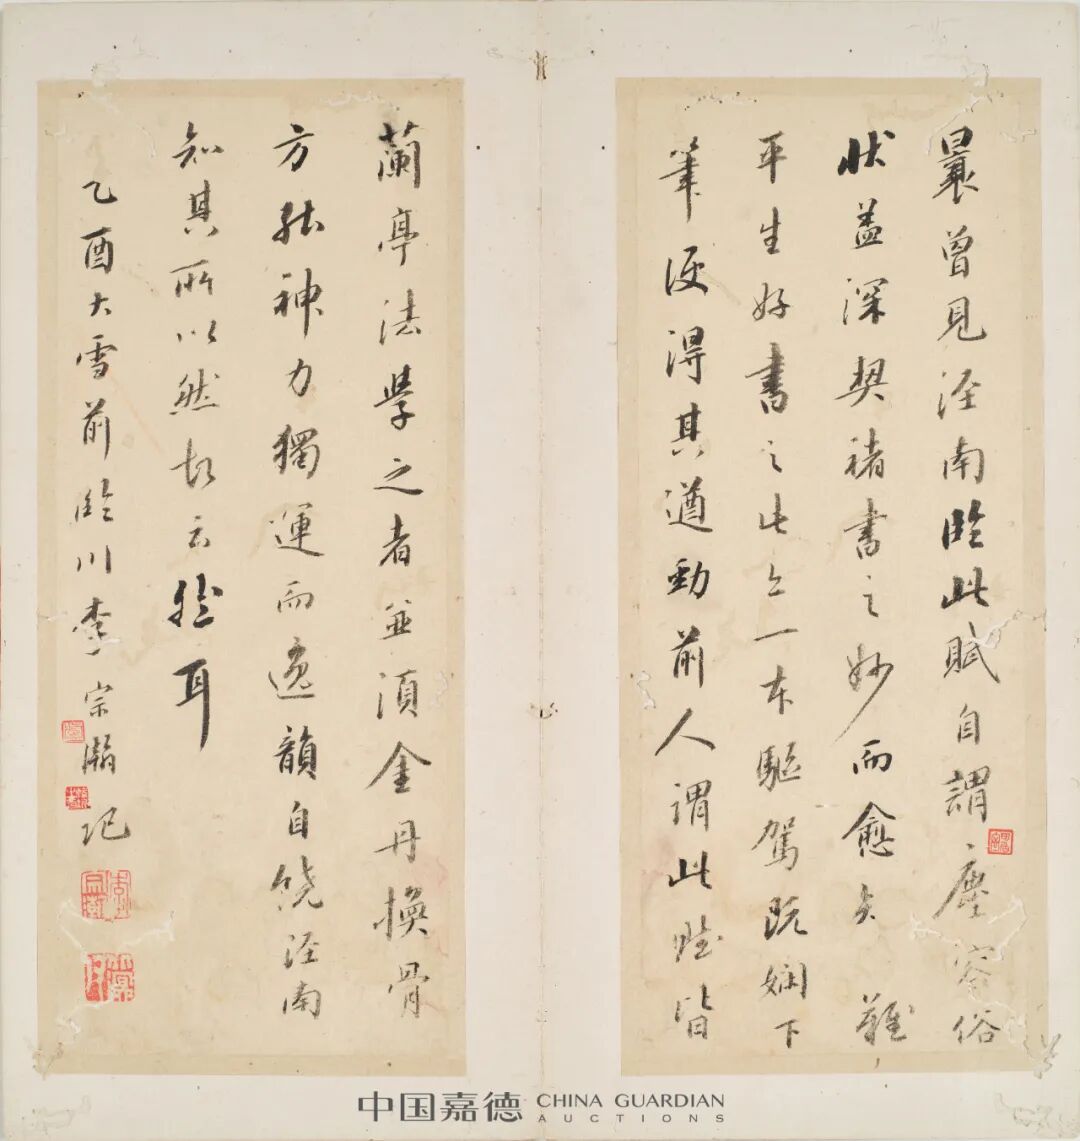 曩曾見涇南臨此賦自謂塵容俗
狀益深契褚書之妙而愈難
平生好書之此一本驅駕既嫻下
筆便得其遒勁前人謂此皆
蘭亭法學之者並須金丹換骨
方能神力獨運而逸韻自饒涇南
知其所以然故云耳
乙酉大雪前臨川李宗瀚記
中国嘉德 CHINA GUARDIAN
AUCTIONS